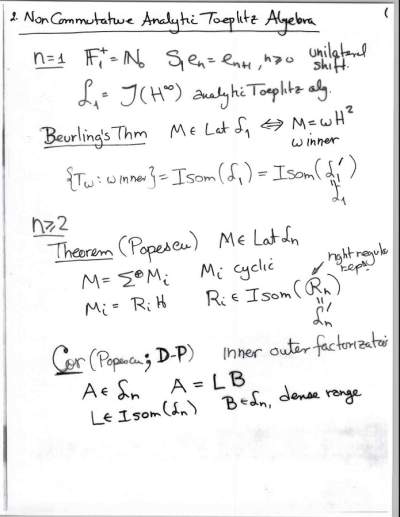 2. NonCommutatwe Analytic Toeplitz Algebra
n=1 𝔽₁⁺ = ℕ₀ S₁eₙ = eₙ₊₁, n≥0 unilateral shift.
𝓛₁ = 𝒥(H^∞) analytic Toeplitz alg.
Beurling's Thm M ∈ Lat 𝓛₁ ⇔ M = ωH²
ω inner
{T_ω : ω inner} = Isom(𝓛₁) = Isom(𝓛₁′)
‖
𝓛₁
n≥2
Theorem (Popescu) M ∈ Lat 𝓛ₙ
right regular repⁿ.
M = Σ^⊕ Mᵢ Mᵢ cyclic
Mᵢ = Rᵢ H Rᵢ ∈ Isom(𝓡ₙ)
‖
𝓛ₙ′
Cor (Popescu; D-P) Inner outer factorization
A ∈ 𝓛ₙ A = LB
L ∈ Isom(𝓛ₙ) B ∈ 𝓛ₙ, dense range